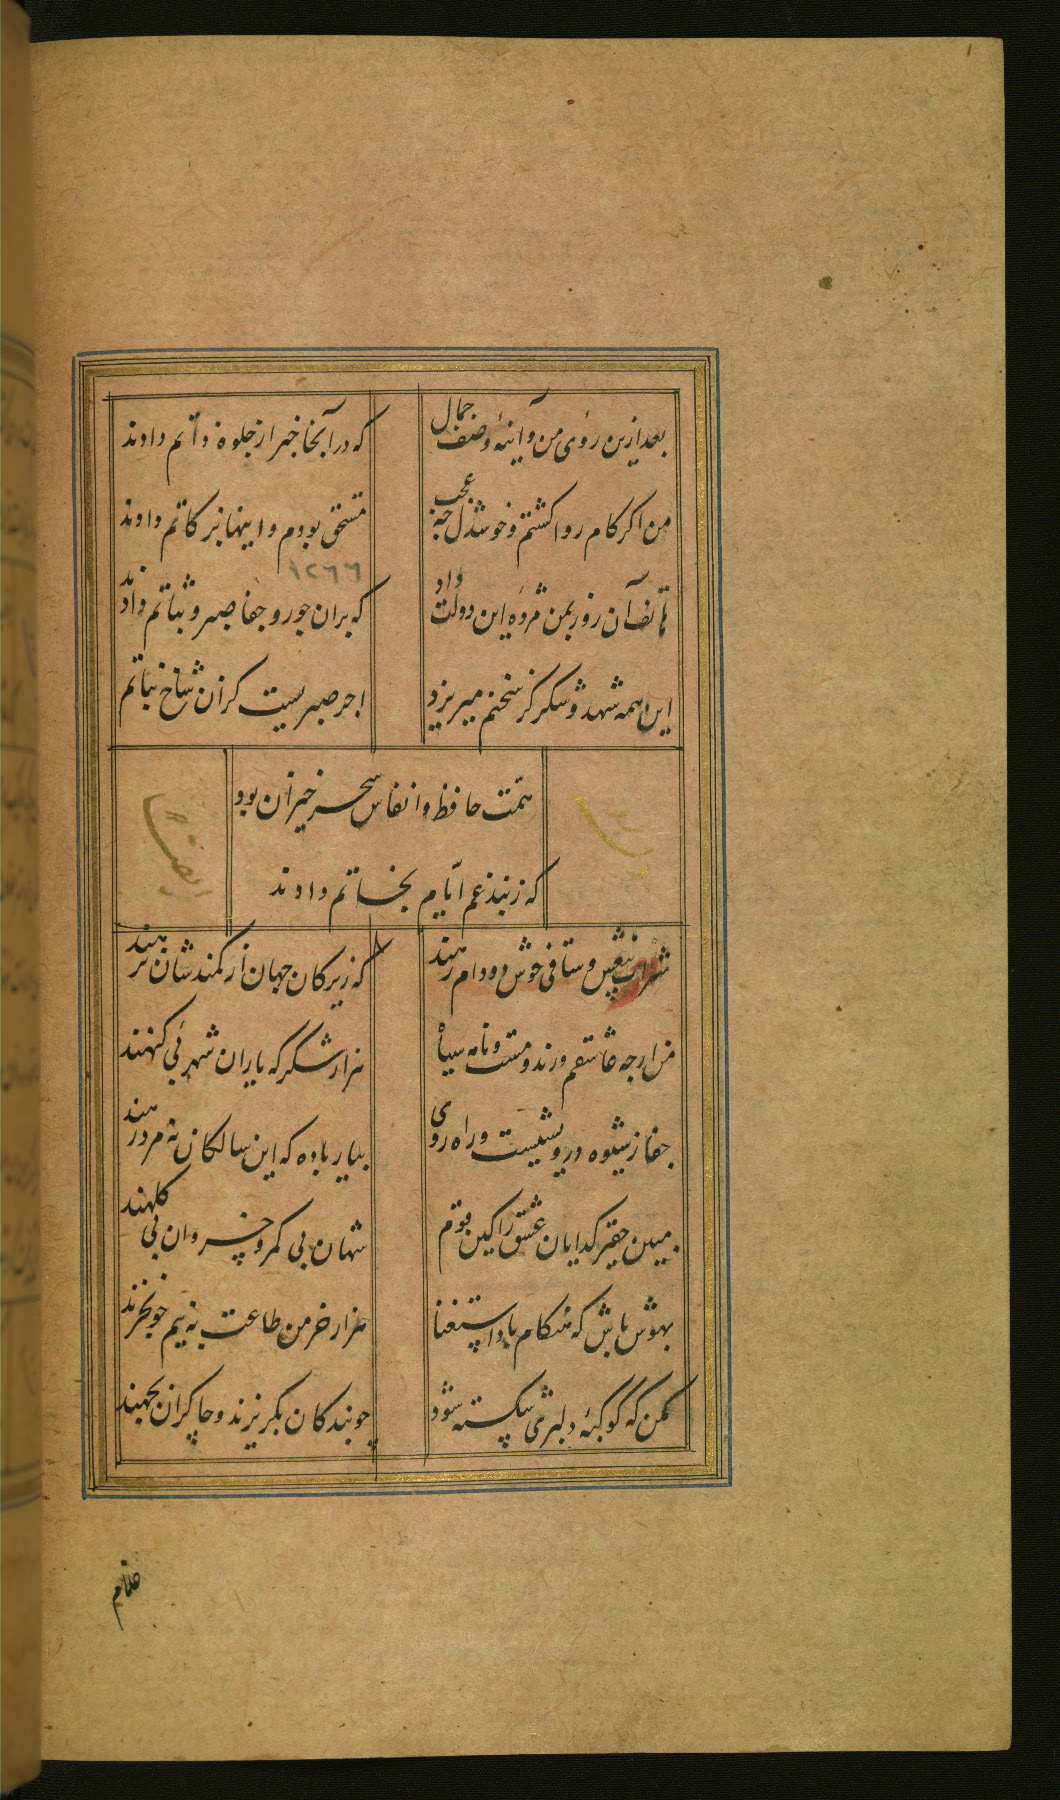 بعد ازین روی من و آینهٔ وصف جمال
که در آنجا خبر از جلوهٔ ذاتم دادند
من اگر کام روا گشتم و خوشدل چه عجب
مستحق بودم و اینها بزکاتم دادند
۱۲۶۶
هاتف آن روز بمن مژدهٔ این دولت داد
که بران جور و جفا صبر و ثباتم دادند
این همه شهد و شکر کز سخنم میریزد
اجر صبریست کزان شاخ نباتم
همت حافظ و انفاس سحر خیزان بود
که ز بند غم ایام نجاتم دادند
ایضا
شراب بیغش و ساقی خوش دو دام رهند
که زیرکان جهان از کمندشان نرهند
من ارچه عاشقم و رند و مست و نامه سیاه
هزار شکر که یاران شهر بی گنهند
جفا نه شیوه درویشیست و راه روی
بیار باده که این سالکان نه مرد رهند
مبین حقیر گدایان عشق را کین قوم
شهان بی کمر و خسروان بی کلهند
بهوش باش که هنگام باد استغنا
هزار خرمن طاعت به نیم جو نخرند
مکن که کوکبهٔ دلبری شکسته شود
چو بندگان بگریزند و چاکران بجهند
غلام